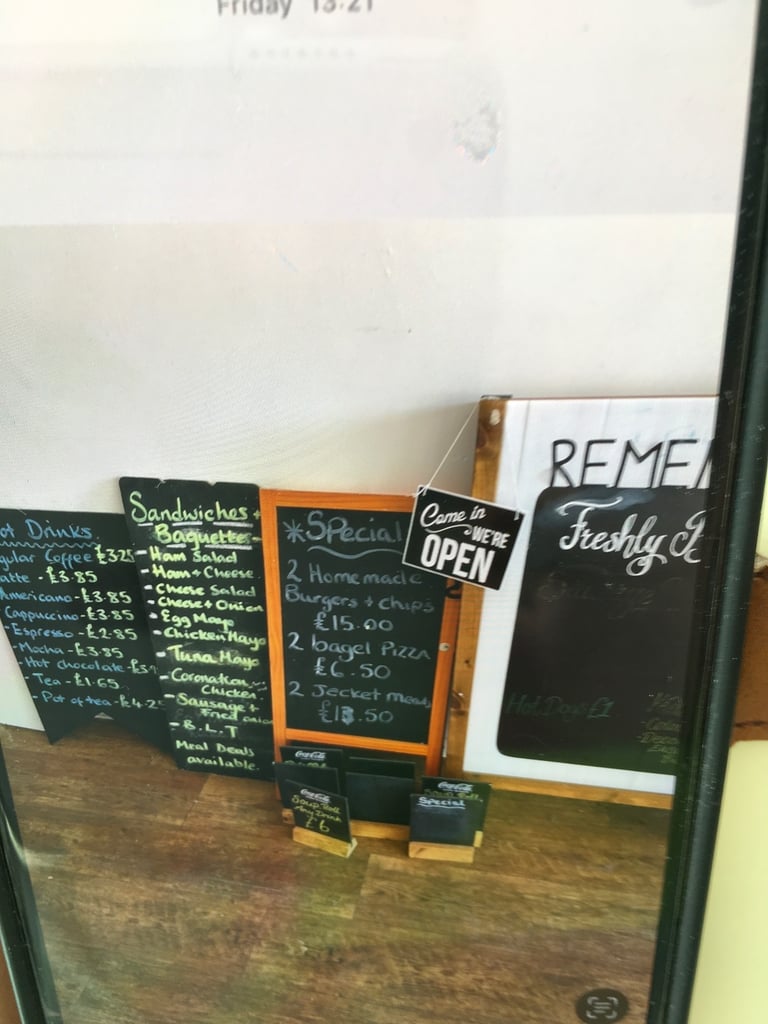 Friday 13:21
Hot Drinks
Regular Coffee £3.25
Latte - £3.85
Americano - £3.85
Cappuccino - £3.85
- Espresso - £2.85
- Mocha - £3.85
- Hot chocolate - £3.
- Tea - £1.65
- Pot of tea - £4.25
Sandwiches +
Baguettes -
- Ham Salad
- Ham + Cheese
- Cheese Salad
- Cheese + Onion
- Egg Mayo
- Chicken Mayo
- Tuna Mayo
- Coronation
Chicken
- Sausage +
Fried onion
- B.L.T
Meal Deals
available.
*Special
2 Homemade
Burgers + Chips
£15.00
2 bagel Pizza
£6.50
2 Jecket meals
£13.50
Come in
WE'RE
OPEN
REMEM
Freshly B
Hot Dogs £1
Coca-Cola
Coca-Cola
Soup Roll
Any Drink
£6
Coca-Cola
Soup Roll
Special